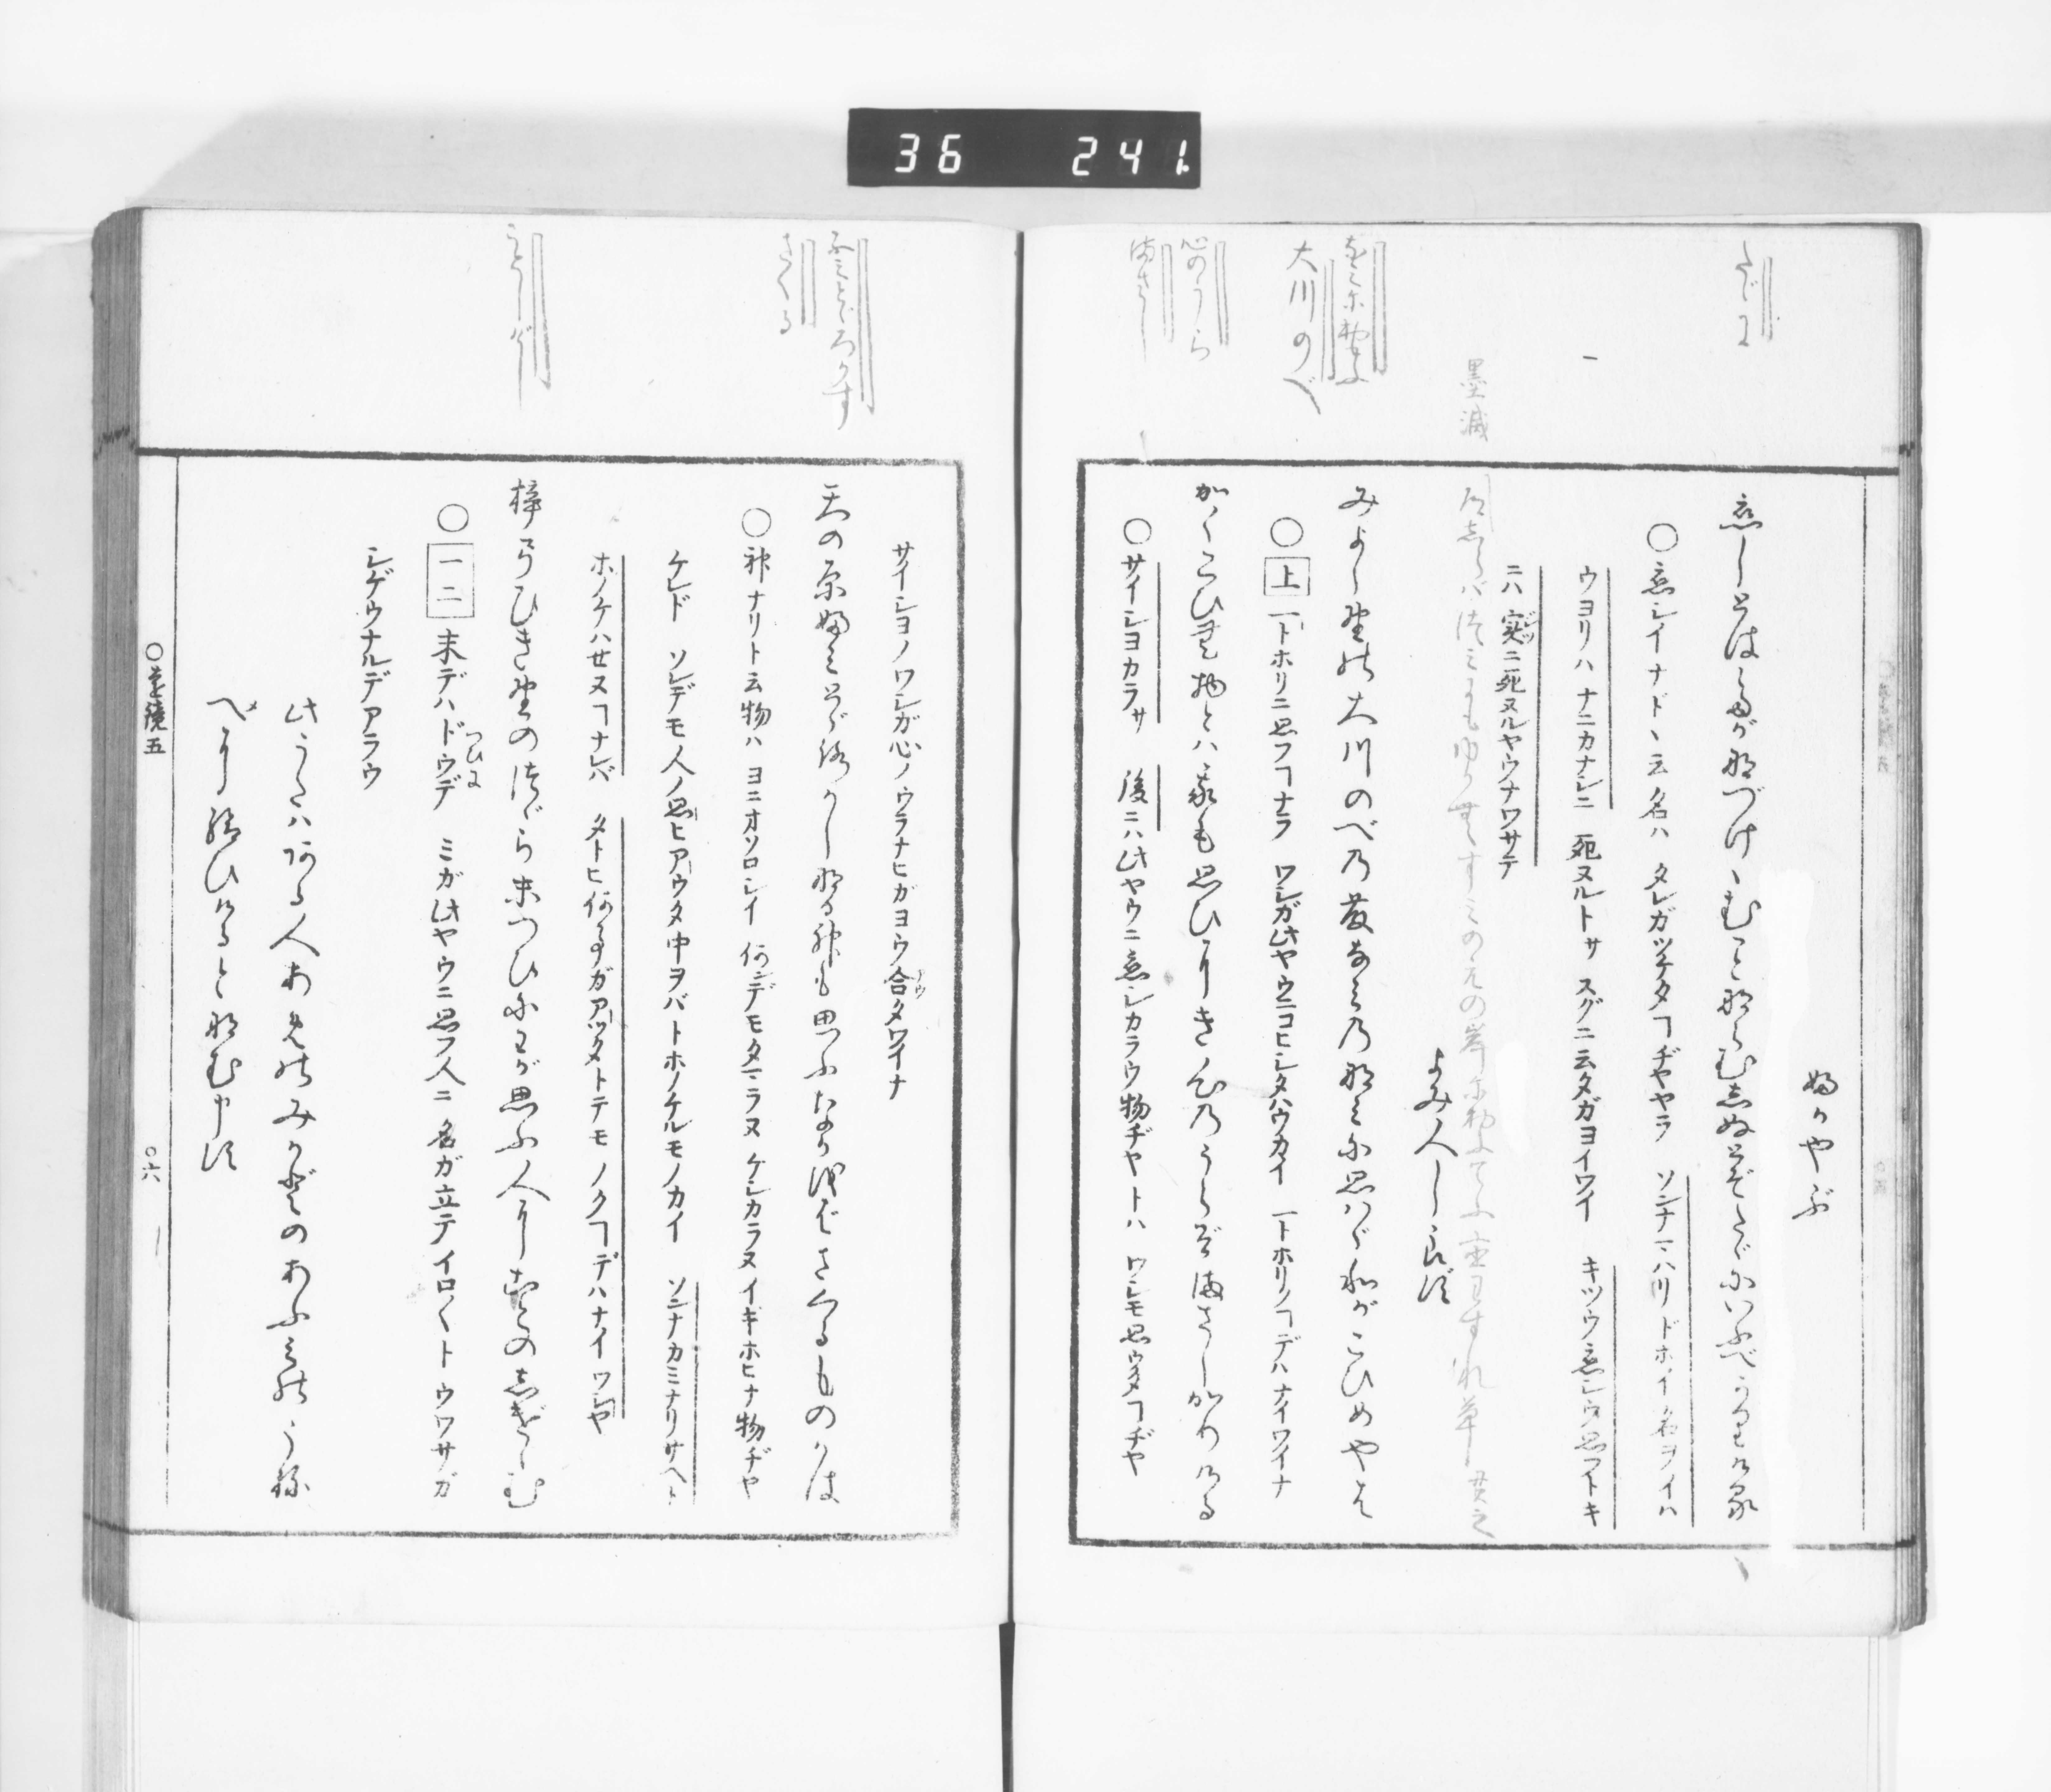 36 241
たゞに
ふかやぶ
恋しとはたが名づけゝむことならむしぬとぞたゞにいふべかりける
○恋シイナドヽ云名ハ タレガツケタコヂヤヤラ ソンナマハリドホイ名ヲイハ
ウヨリハ ナニカナシニ 死ヌルトサ スグニ云タガヨイワイ キツウ恋シウ思フトキ
ニハ 実ニ死ヌルヤウナワサテ
墨滅
道しらばつみにもゆかむすみの江の岸におふてふ恋わすれ草 貫之
よみ人しらず
大川のべ
みよしのの大川のべの藤なみのなみに思はゞわがこひめやは
○上 一トホリニ思フコナラ ワシガ此ヤウニコヒシタハウカイ 一トホリノコデハナイワイナ
心のうら
まさし
かくこひむ物とは我も思ひにき心のうらぞまさしかりける
○サイシヨカラサ 後ニハ此ヤウニ恋シカラウ物ヂヤトハ ワシモ思ウタコヂヤ
サイシヨノワシガ心ノウラナヒガヨウ合タワイナ
ふみとどろかす
さくる
天の原ふみとゞろかしなる神も思ふなかをばさくるものかは
○神ナリト云物ハ ヨニオソロシイ 何デモタマラヌ ケシカラヌイキホヒナ物ヂヤ
ケレド ソレデモ人ノ思ヒアウタ中ヲバトホノケルモノカイ ソンナカミナリサヘ
ホノケハセヌコナレバ タトヒ何事ガアツタトテモ ノクコデハナイワシヤ
梓弓ひき野のつゞら末つひにわが思ふ人にことのしげけむ
○一二 末デハドウデ ミガ此ヤウニ思フ人ニ 名ガ立テイロ〱トウワサガ
つひに
シゲウナルデアラウ
此うたはある人あめのみかどのあふみのうね
べに給ひけるとなむ申す
○遠鏡五
○六